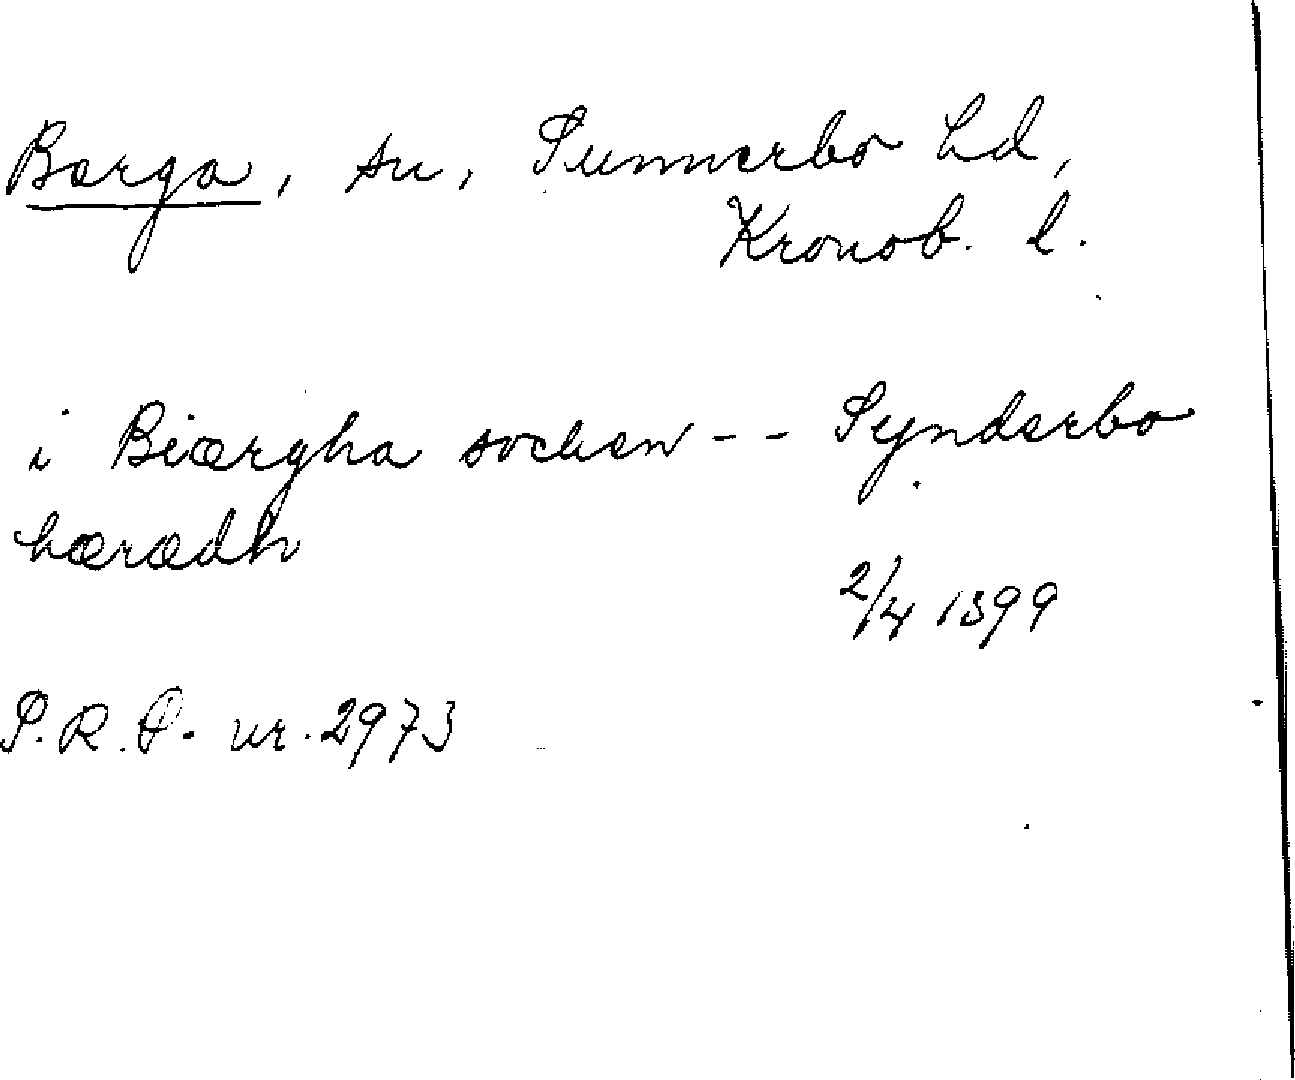 Berga, sn, Sunnerbo hd,
Kronob. l.
i Biærgha socken -- Synderbo
hærædh
2/4 1399
S.R.P. nr. 2973